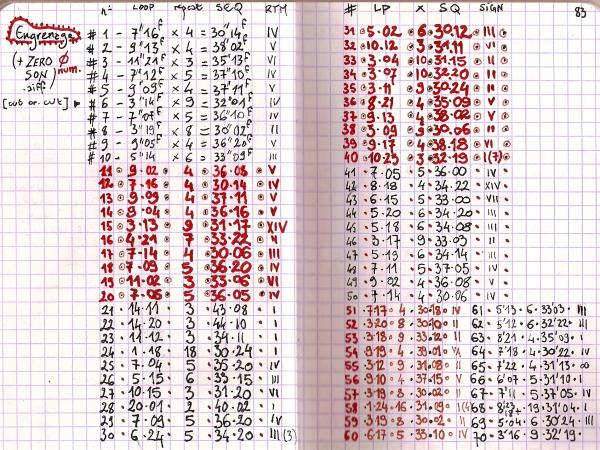 Engrenage
(+ ZERO Ø
SON) num.
.aiff
[cut or. cut] ▸
n° LOOP repeat SEQ RTM
# 1 - 7"16F x 4 = 30"14F IV
# 2 - 9"13F x 4 = 38"02F V
# 3 - 11"21F x 3 = 35"13F VI
# 4 - 7"12F x 5 = 37"10F IV
# 5 - 9"09F x 4 = 37"11F V
# 6 - 3"14F x 9 = 32"01F IV
# 7 - 7"01F x 5 = 36"10F IV
# 8 - 3"19F x 8 = 30"02F II
# 9 - 9"05F x 4 = 36"20F V
# 10 - 5"14 x 6 = 33"09F III
11 9.02 4 36.08 V
12 7.16 4 30.14 IV
13 9.09 4 37.11 V
14 9.04 4 36.16 V
15 3.13 9 31.17 XIV
16 4.21 7 33.22 II
17 7.14 4 30.06 III
18 7.09 5 36.20 IV
19 11.02 3 33.06 VI
20 7.06 5 36.05 IV
21 14.11 3 43.08 I
22 14.20 3 44.10 I
23 11.12 3 34.11 I
24 1.18 18 30.24 I
25 7.04 5 35.20 IV
26 5.15 6 33.15 III
27 10.15 3 31.20 VI
28 20.01 2 40.02 I
29 7.09 5 36.20 IV
30 6.24 5 34.20 III(3)
83
# LP x SQ SIGN
31 5.02 6 30.12 III
32 10.12 3 31.11 VI
33 3.04 10 31.15 II
34 3.07 10 32.20 II
35 3.11 9 30.24 II
36 8.21 4 35.09 V
37 9.13 4 38.02 V
38 3.09 9 30.06 II
39 9.17 4 38.18 VI
40 10.23 3 32.19 I(7)
41 7.05 5 36.00 IV
42 8.18 4 34.22 XIV
43 6.15 5 33.00 VII
44 5.20 6 34.20 III
45 5.18 6 34.08 III
46 3.17 9 33.03 II
47 5.19 6 34.14 III
48 7.11 5 37.05 IV
49 9.02 4 36.08 V
50 7.14 4 30.06 IV
51 7.17 4 30.18 IV 61. 5"13.6.33"03. III
52 3.20 8 30.10 II 62. 5"12.6.32"22. III
53 3.18 9 33.12 II 63. 8"21.4.35"09. I
54 9.19 4 39.01 VA 64. 7"18.4.30"22. IV
55 3.12 9 31.08 II 65. 7"22.4.31"13. ∞
56 9.10 4 37.15 V 66. 6"07.5.31"10. I
57 3.19 8 30.02 II 67. 7"11.5.37"05. IV
58 1.24 16 31.09 I(4) 68. 8"23.19.31"04. I
59 3.19 8 30.02 II 69. 5"04.6.30"24. III
60 6.17 5 33.10 IV 70. 3"16.9.32"19.